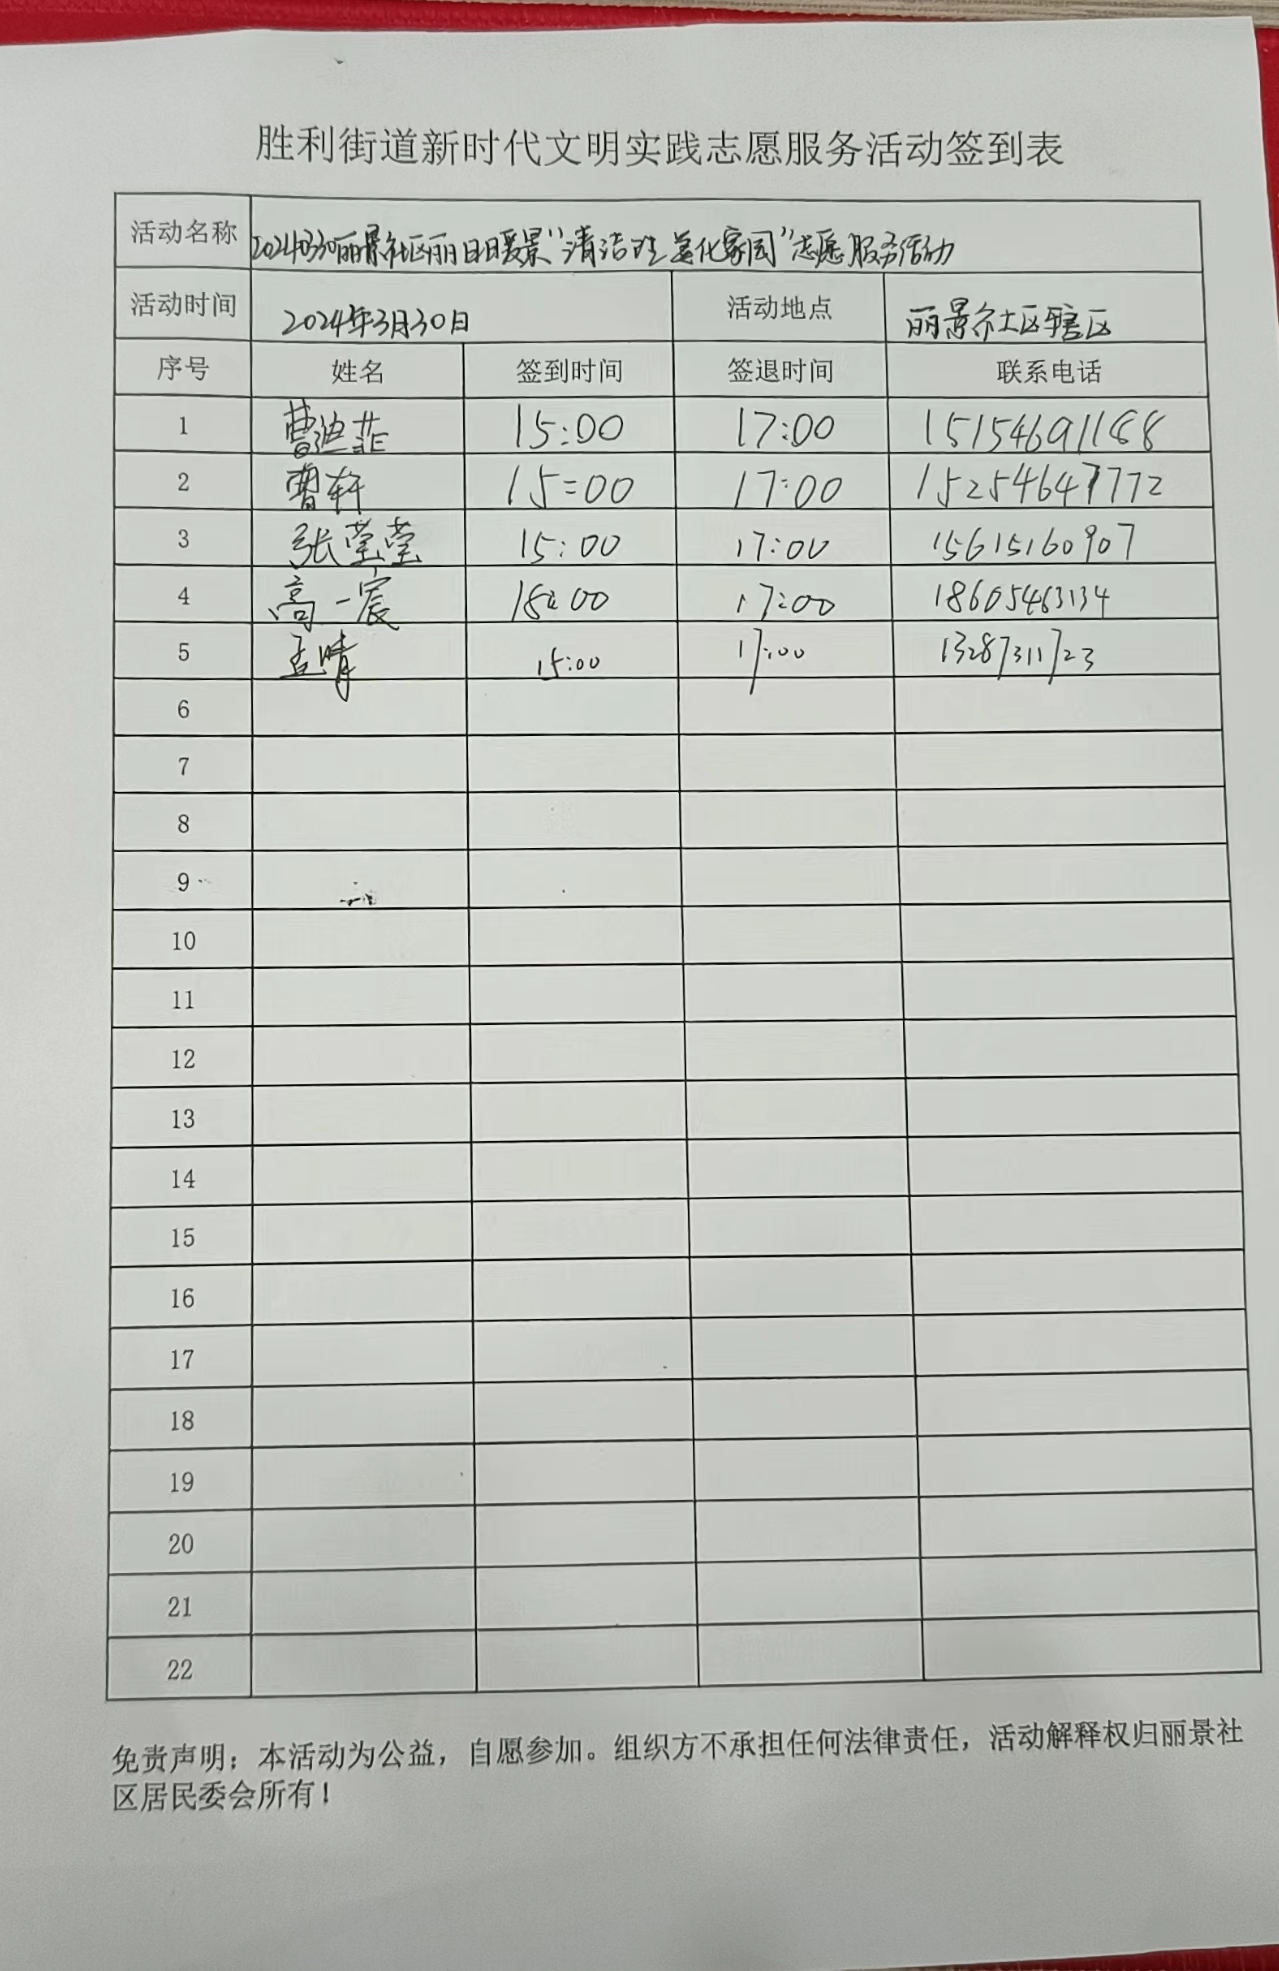 胜利街道新时代文明实践志愿服务活动签到表
活动名称 20240330丽景社区丽日暖景“清洁 美化家园”志愿服务活动
活动时间 2024年3月30日 活动地点 丽景社区辖区
序号 姓名 签到时间 签退时间 联系电话
1 曹迪菲 15:00 17:00
2 曹轩 15:00 17:00 15254647772
3 张莹莹 15:00 17:00 15615160907
4 高一宸 17:00 18605463134
5 孟晴 15:00 17:00 13287311723
6
7
8
9
10
11
12
13
14
15
16
17
18
19
20
21
22
免责声明：本活动为公益，自愿参加。组织方不承担任何法律责任，活动解释权归丽景社
区居民委会所有！